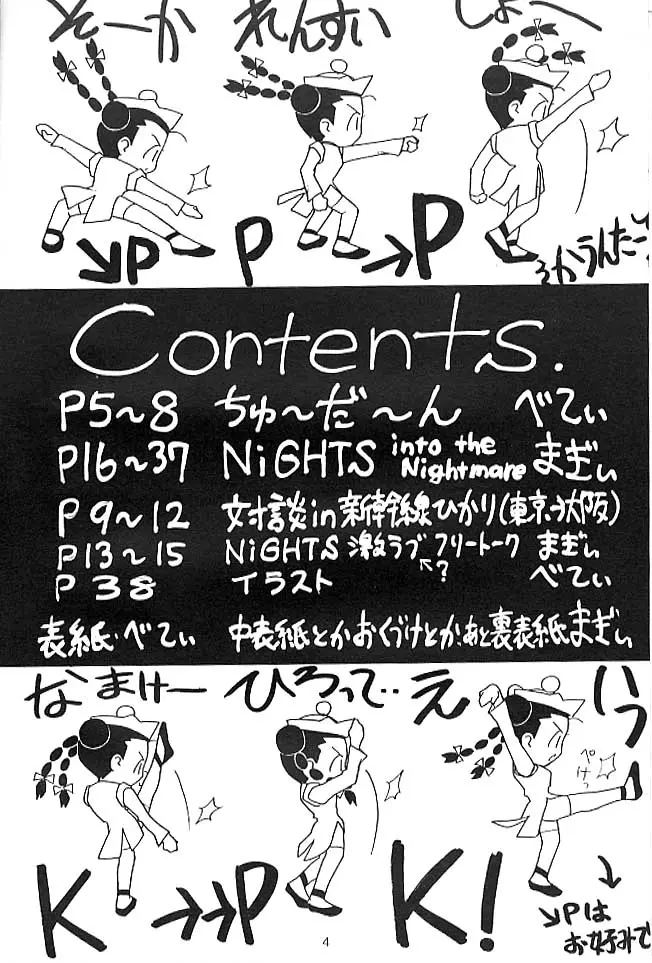 そーか れんすい しょへ
↘P P →P
ろかうんたーって
Contents.
P5～8 ちゅ～だ～ん べてぃ
P16～37 NiGHTS into the Nightmare まぎぃ
P9～12 対談in新幹線ひかり(東京→大阪)
P13～15 NiGHTS 激ラブフリートーク まぎぃ
↖?
P38 イラスト べてぃ
表紙・べてぃ 中表紙とかおくづけとか、あと裏表紙まぎぃ
なまけー ひろって‥ え いっ
ぺけっ
K →→P K!
↓
↘Pは
お好みで
4